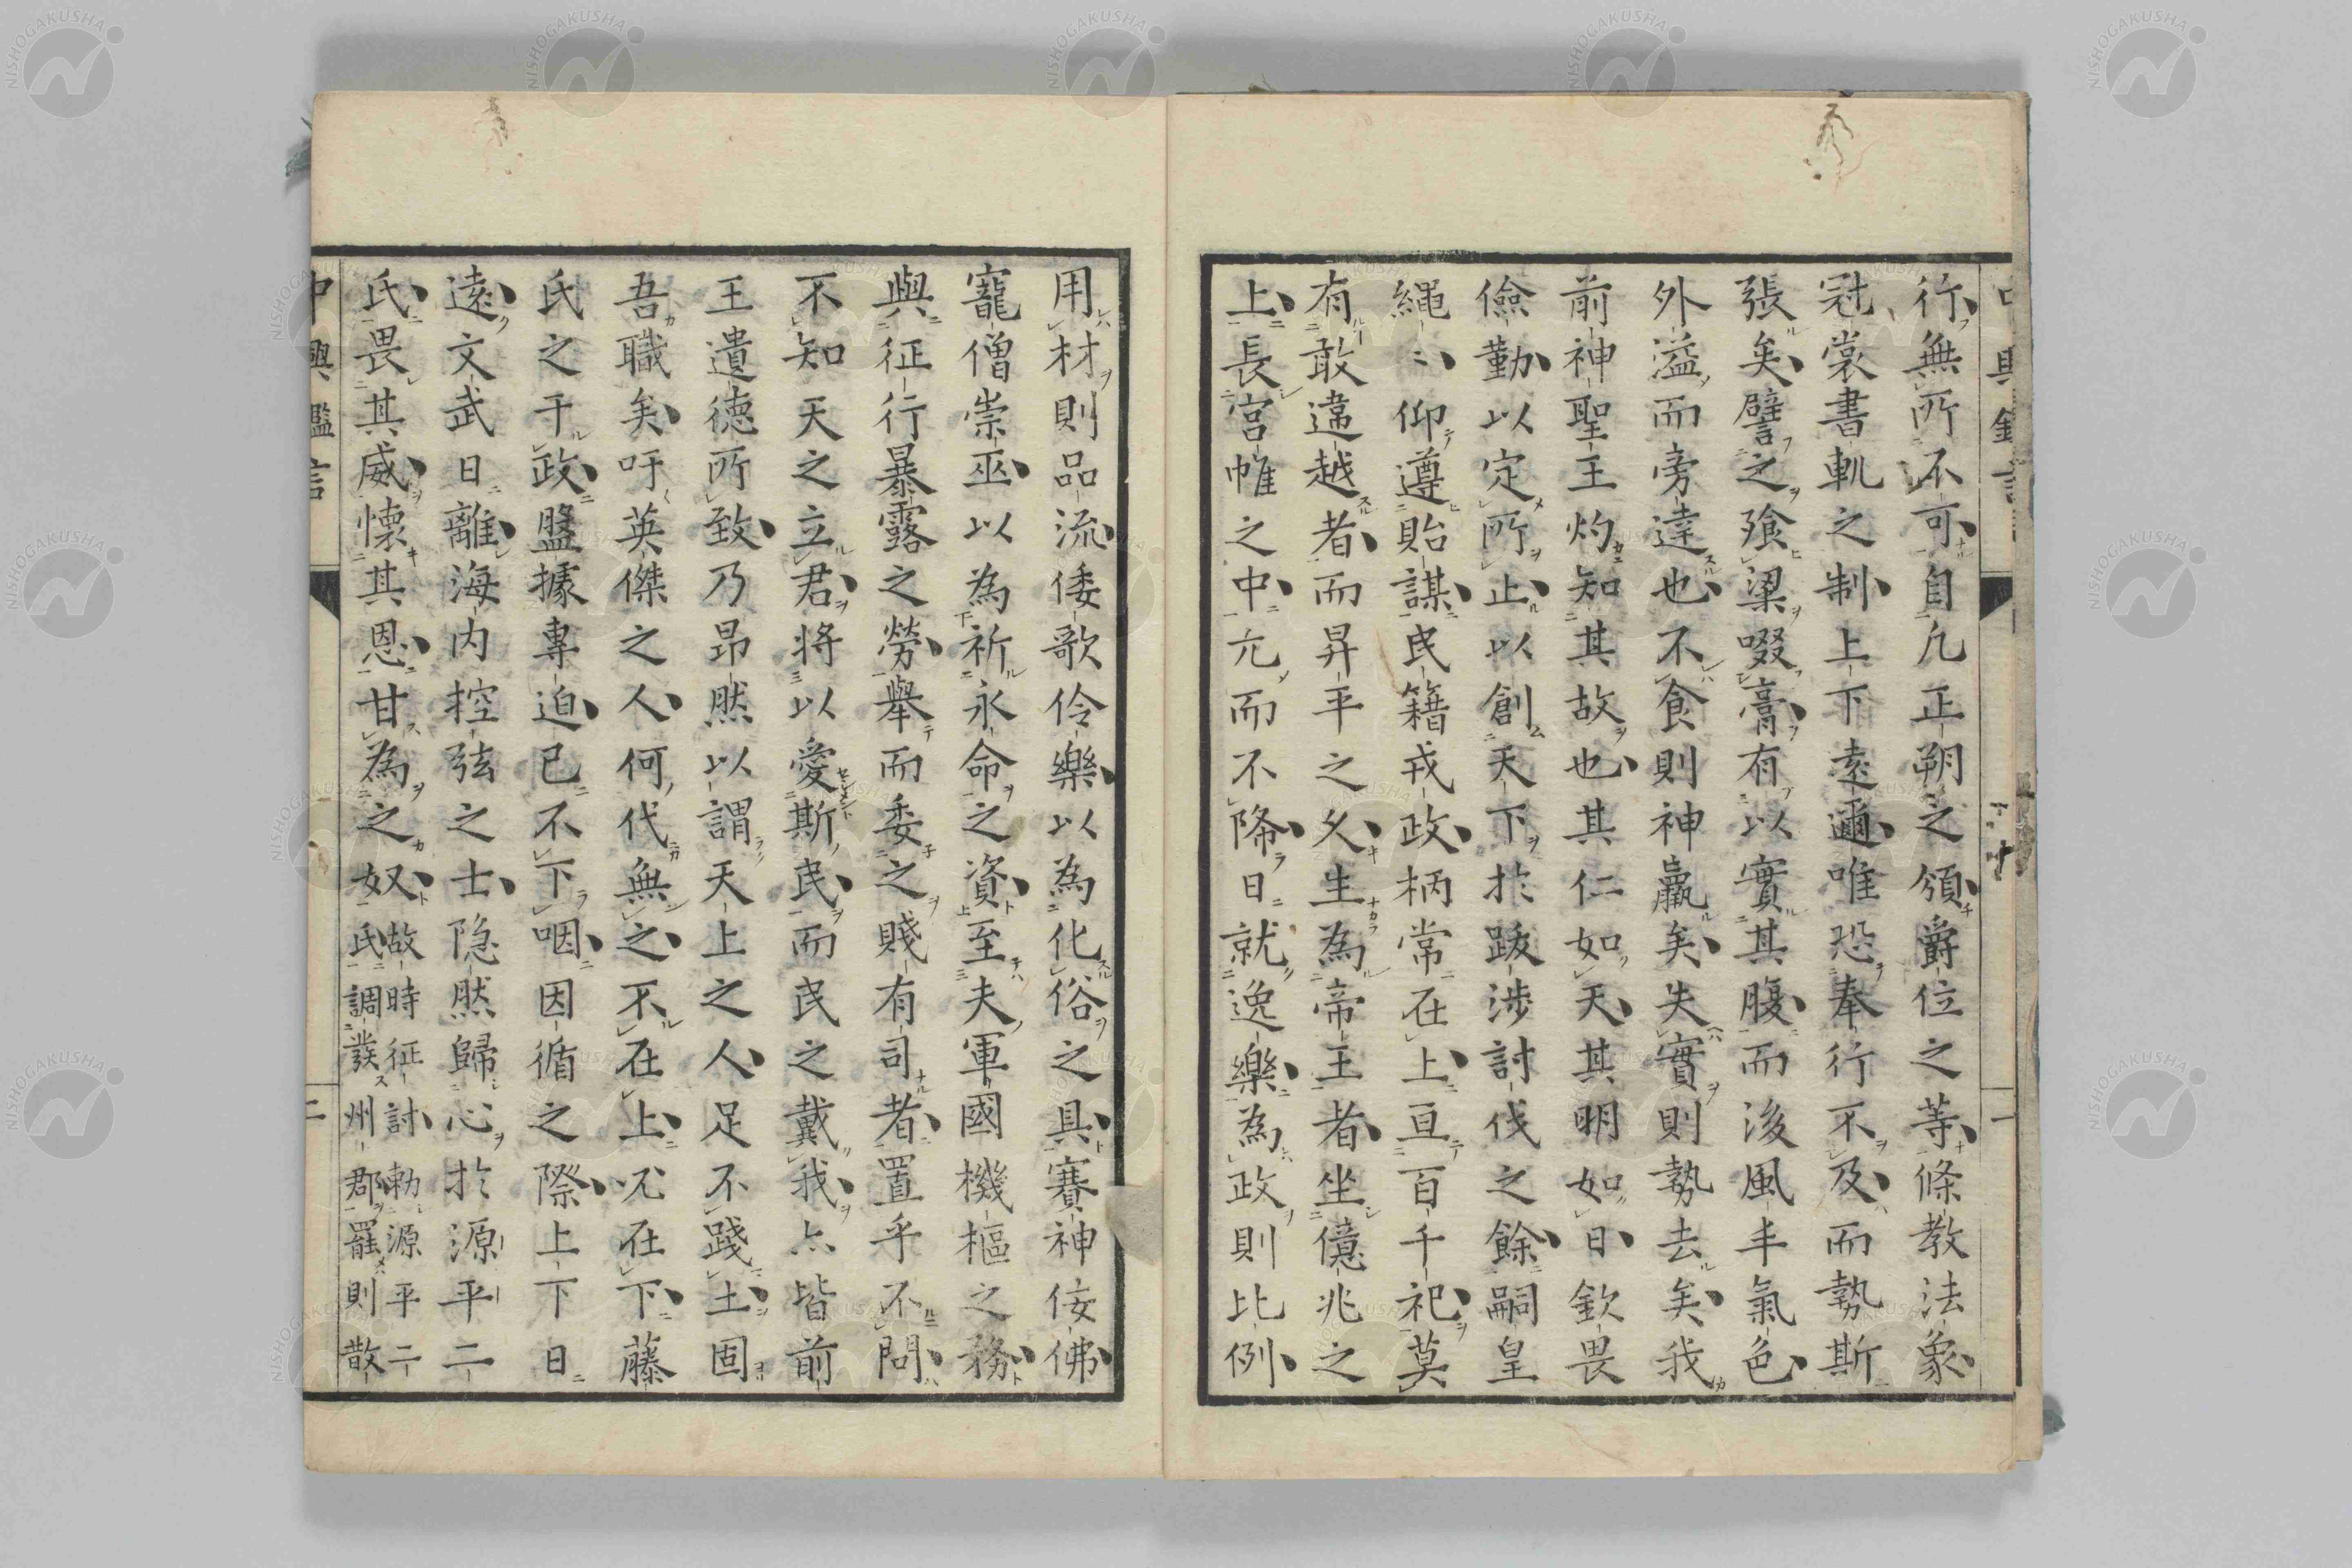 行、無所不可、自凡正朔之領、爵位之等、條教法象、
冠裳書軌之制、上下遠邇、唯恐奉行不及、而勢斯
張矣、譬之飱粱啜膏、有以實其腹、而後風丰氣色、
外溢而旁達也、不食則神羸矣、失實則勢去矣、我
前神聖王灼知其故也、其仁如天、其明如日、欽畏
儉勤、以定所止、以創天下於跋涉討伐之餘、嗣皇
繩〻、仰遵貽謀、民籍戎政、柄常在上、亘百千祀、莫
有敢違越者、而昇平之久、生為帝王者、坐億兆之
上、長宮帷之中、亢而不降、日就逸樂、為政則比例、
用材則品流、倭歌伶樂、以為化俗之具、賽神佞佛、
寵僧崇巫、以為祈永命之資、至夫軍國機樞之務、
與征行暴露之勞、舉而委之賤有司者、置乎不問、
不知天之立君、將以愛斯民、而民之戴我、亦皆前
王遺德所致、乃昂然以謂天上之人、足不踐土、固
吾職矣、吁英傑之人、何代無之、不在上、必在下、藤
氏之于政、盤據專迫、已不下咽、因循之際、上下日
遠、文武日離、海內控弦之士、隱然歸心於源平二
氏、畏其威、懷其恩、甘為之奴、
故時征討、勅源平二
氏、調發州郡、罷則散
中興鑑言
二
一
NISHOGAKUSHA